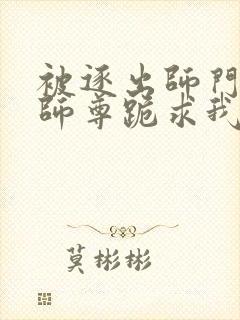 被逐出師門
師尊跪求我
莫彬彬